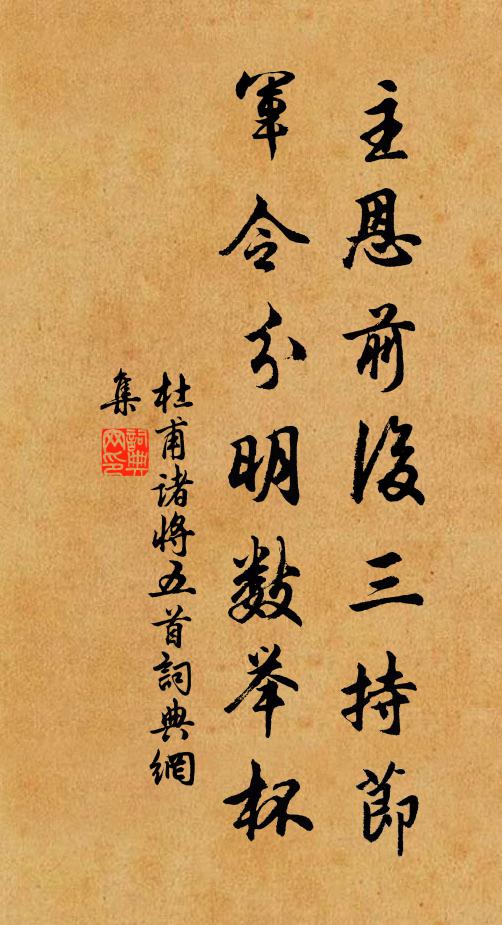 主恩前後三持節
軍令分明數舉杯
杜甫諸將五首詞典網
集
詞典网印